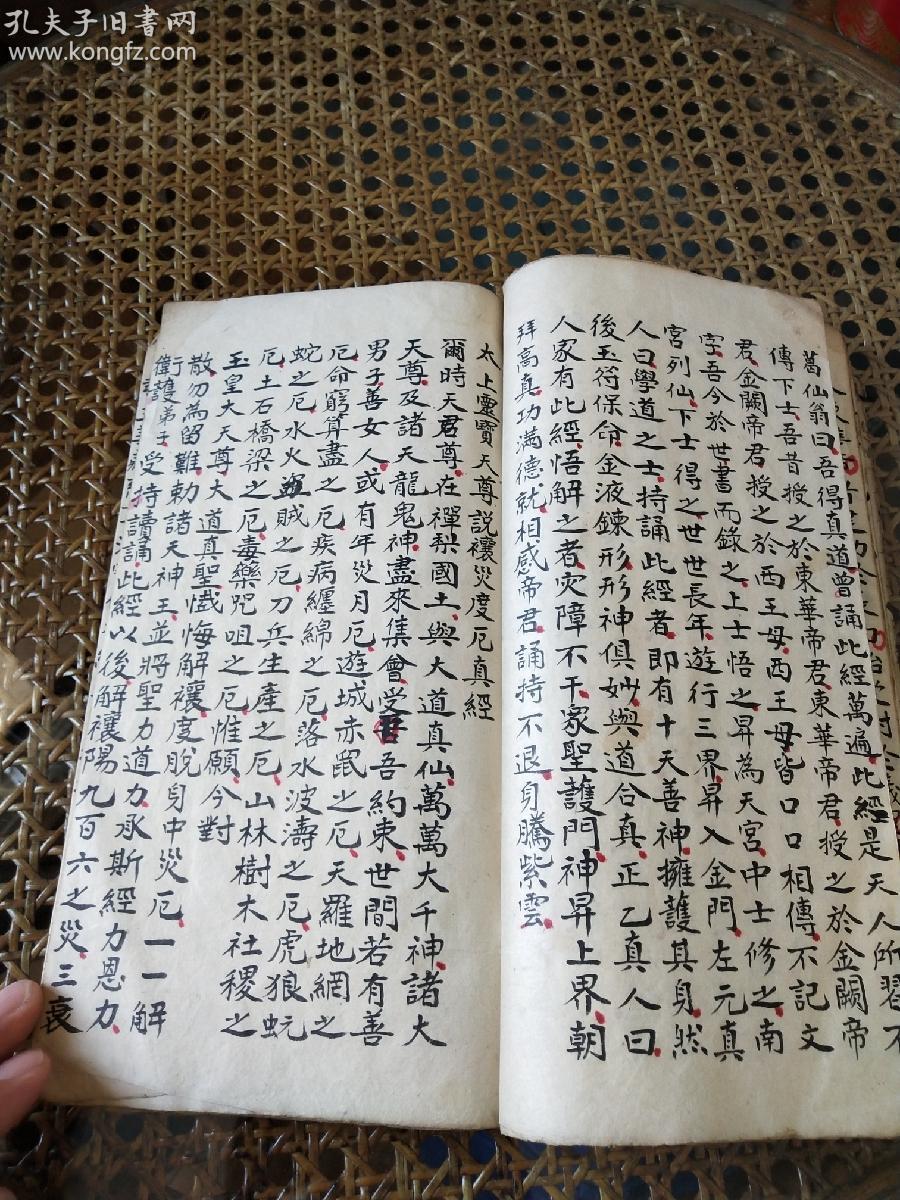 孔夫子旧書网
www.kongfz.com
葛仙翁曰吾得真道曾誦此經萬遍此經是天人所習不
傳下士吾昔授之於東華帝君東華帝君授之於金闕帝
君金闕帝君授之於西王母西王母皆口口相傳不記文
字吾今於世書而錄之上士悟之昇為天宮中士修之南
宮列仙下士得之世世長年遊行三界昇入金門左元真
人曰學道之士持誦此經者即有十天善神擁護其身然
後玉符保命金液鍊形形神俱妙與道合真正乙真人曰
人家有此經悟解之者灾障不干家聖護門神昇上界朝
拜高真功滿德就相感帝君誦持不退身騰紫雲
太上靈寶天尊說禳災度厄真經
爾時天尊在禪梨國土與大道真仙萬萬大千神諸大
天尊及諸天龍鬼神盡來集會受吾約束世間若有善
男子善女人或有年災月厄遊城赤鼠之厄天羅地網之
厄命窮算盡之厄疾病纏綿之厄落水波濤之厄虎狼蚖
蛇之厄水火盜賊之厄刀兵生產之厄山林樹木社稷之
厄土石橋梁之厄毒藥咒咀之厄惟願今對
玉皇大天尊大道真聖懺悔解禳度脫身中災厄一一解
散勿為留難勅諸天神王並將聖力道力承斯經力恩力
衛護弟子受持讀誦此經以後解禳陽九百六之災三衰